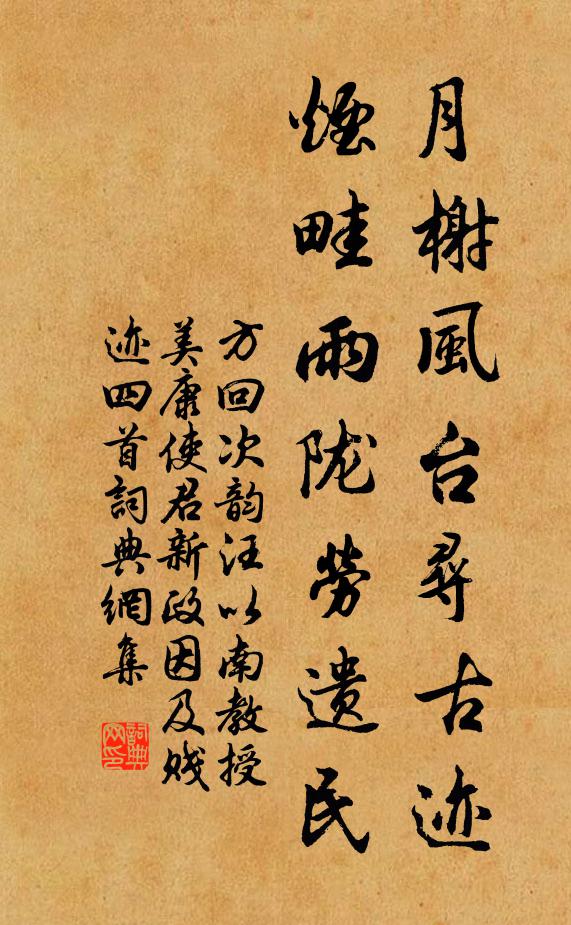 月榭風台尋古迹
煙畦雨陇勞遺民
方回次韵汪以南教授
美康使君新政因及贱
迹四首詞典網集
詞典網印